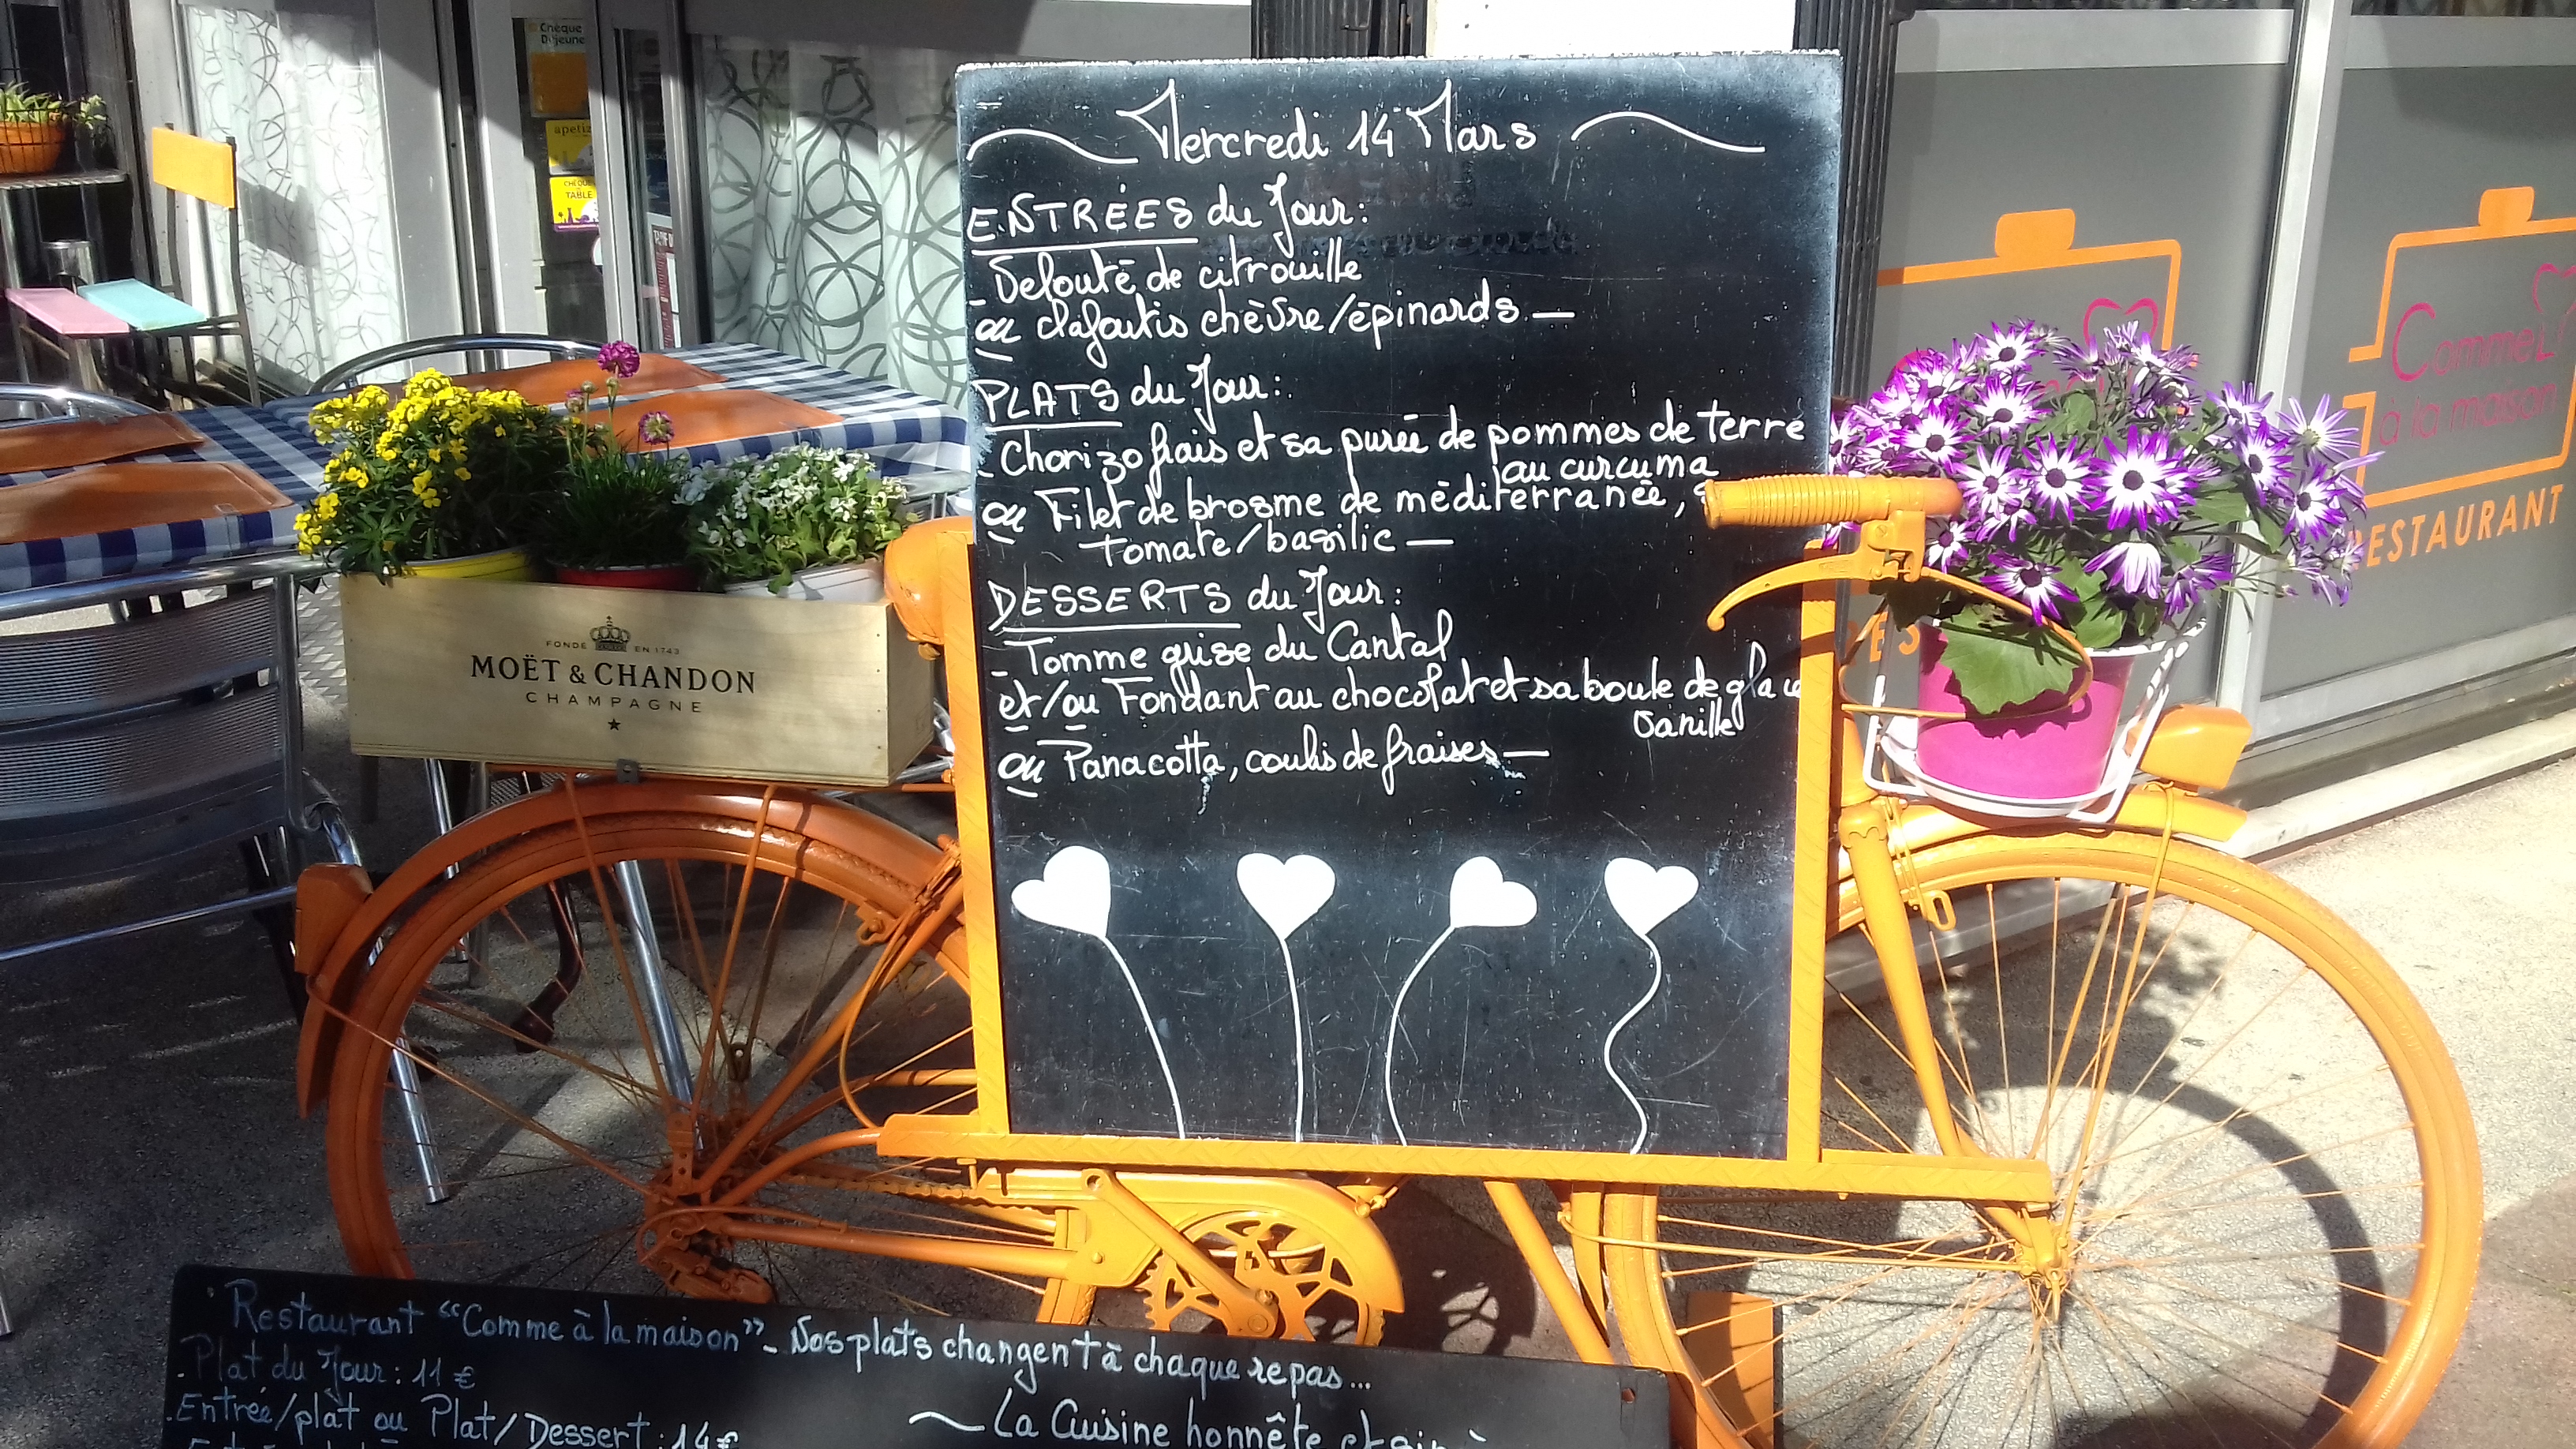 Chèque
Déjeuner
apetiz
CHÈQUE
TABLE
Mercredi 14 Mars
ENTRÉES du Jour:
- Velouté de citrouille
ou clafoutis chèvre/épinards —
PLATS du Jour:
- Chorizo frais et sa purée de pommes de terre
au curcuma
ou Filet de brosme de méditerranée,
Tomate/basilic —
DESSERTS du Jour:
- Tomme grise du Cantal
et/ou Fondant au chocolat et sa boule de glace
Vanille
ou Panacotta, coulis de fraises —
FONDÉ EN 1743
MOËT & CHANDON
CHAMPAGNE
Comme
à la maison
RESTAURANT
Restaurant "Comme à la maison" - Nos plats changent à chaque repas...
- Plat du Jour: 11 €
- Entrée/plat ou Plat/Dessert: 14 €
La Cuisine honnête et